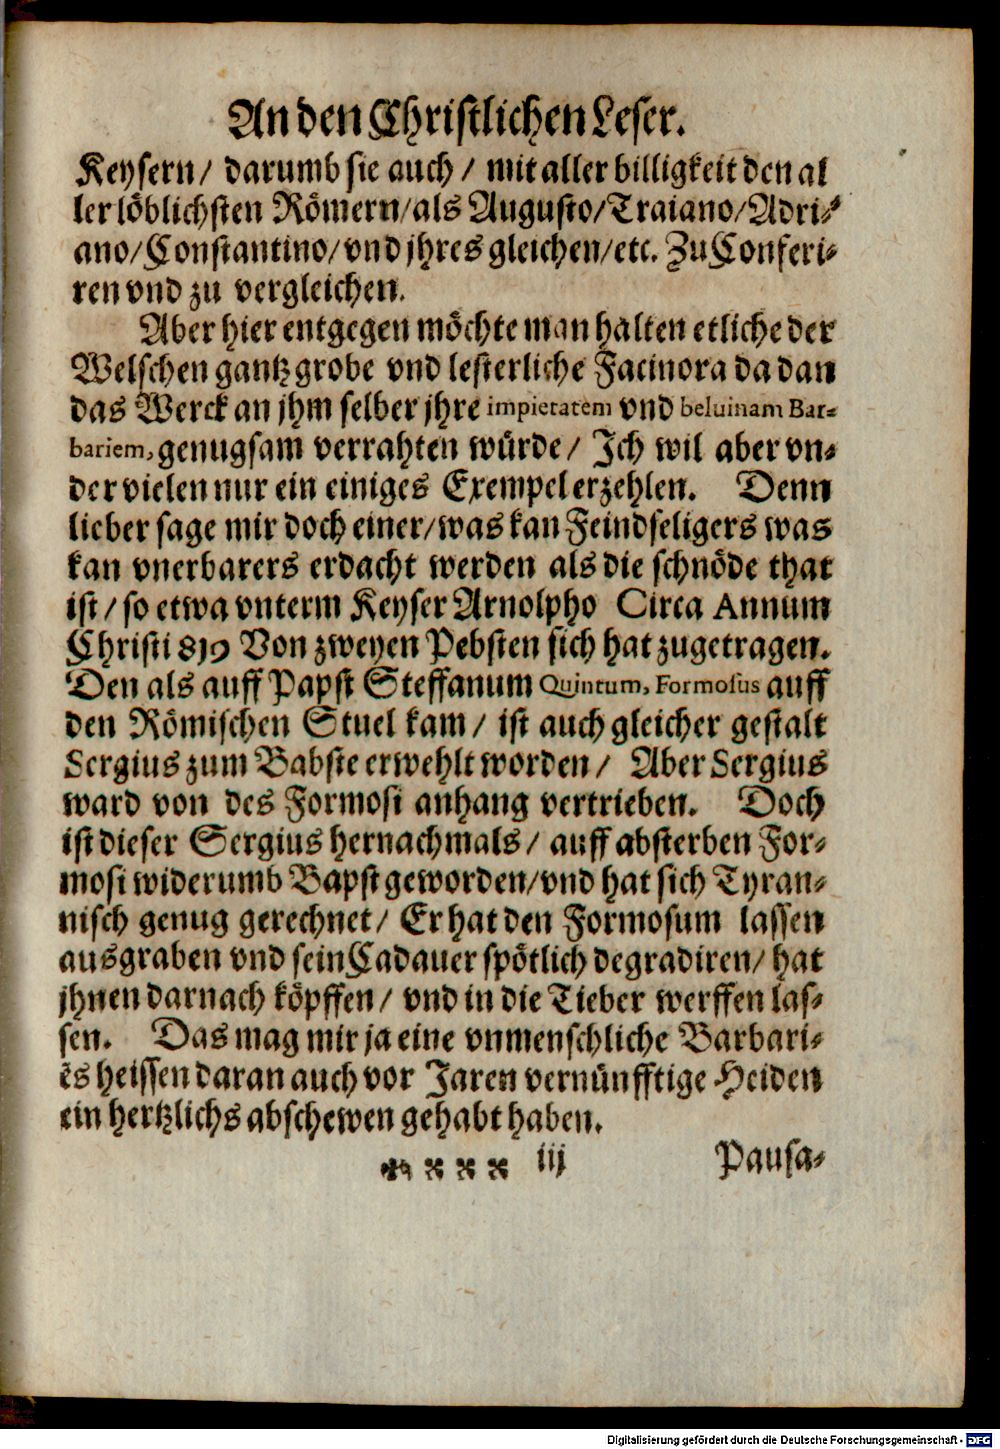 An den Christlichen Leser.
Keysern/ darumb sie auch/ mit aller billigkeit den al
ler löblichsten Römern/als Augusto/Traiano/Adri-
ano/Constantino/vnd jhres gleichen/etc. Zu Conferi-
ren vnd zu vergleichen.
Aber hier entgegen möchte man halten etliche der
Welschen gantz grobe vnd lesterliche Facinora da dan
das Werck an jhm selber jhre impietatem vnd beluinam Bar-
bariem, genugsam verrahten würde/ Ich wil aber vn-
der vielen nur ein einiges Exempel erzehlen. Denn
lieber sage mir doch einer/was kan Feindseligers was
kan vnerbarers erdacht werden als die schnöde that
ist/ so etwa vnterm Keyser Arnolpho Circa Annum
Christi 819 Von zweyen Pebsten sich hat zugetragen.
Den als auff Papst Steffanum Quintum, Formosus auff
den Römischen Stuel kam/ ist auch gleicher gestalt
Sergius zum Babste erwehlt worden/ Aber Sergius
ward von des Formosi anhang vertrieben. Doch
ist dieser Sergius hernachmals/ auff absterben For-
mosi widerumb Bapst geworden/vnd hat sich Tyran-
nisch genug gerechnet/ Er hat den Formosum lassen
ausgraben vnd sein Cadauer spötlich degradiren/ hat
jhnen darnach köpffen/ vnd in die Tieber werffen las-
sen. Das mag mir ja eine vnmenschliche Barbari-
es heissen daran auch vor Jaren vernünfftige Heiden
ein hertzlichs abschewen gehabt haben.
iij Pausa-
Digitalisierung gefördert durch die Deutsche Forschungsgemeinschaft - DFG